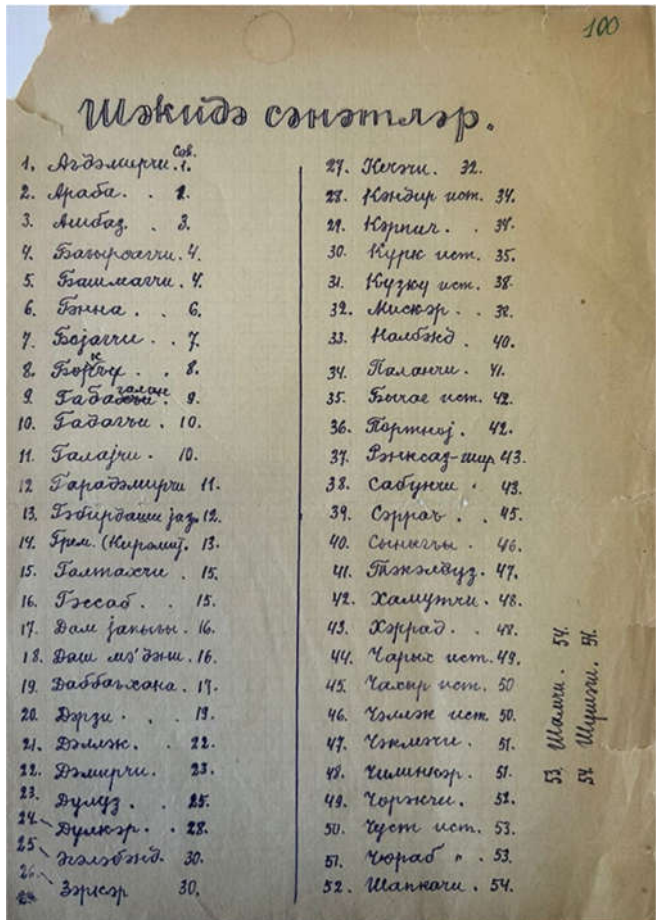 100
Шәкидә сәнәтләр.
Сәһ.
1. Агдәмирчи. 1.
2. Араба. . 2.
3. Ашбаз. . 3.
4. Бағырсагчи. 4.
5. Башмагчи. 4.
6. Бәнна. . 6.
7. Бојагчи. . 7.
8. . . 8.
9. галан. 9.
10. Гадагчы. 10.
11. Галајчи. 10.
12 Гарадәмирчи 11.
13. Гәбирдашы јаз. 12.
14. Грем. 13.
15. Галтахчи. 15.
16. Гәссаб. . 15.
17. Дам јапығы. 16.
18. Даш мә'дәни. 16.
19. Даббагхана. 17.
20. Дәрзи. . 19.
21. Дәлләк. . 22.
22. Дәмирчи. 23.
23. Дулуз. . 25.
24. Дүлкәр. . 28.
25 30.
26. Зәркәр 30.
27. Кечәчи. 32.
28. Кәндир ист. 34.
29. Кәрпич. . 34.
30. Күрк ист. 35.
31. Күзкү ист. 38.
32. Мискәр. . 38.
33. Налбәнд. 40.
34. Паланчи. 41.
35. Бычаг ист. 42.
36. Портној. 42.
37. Рәнксаз-шир 43.
38. Сабунчи . 43.
39. Сәррач. . 45.
40. Сыныгчы. 46.
41. Тәкәлдуз. 47.
42. Хамутчи. 48.
43. Хәррад. . 48.
44. Чарых ист. 49.
45. Чахыр ист. 50
46. Чәлләк ист. 50.
47. Чәкмәчи. 51.
48. Чилинкәр. 51.
49. Чорәкчи. 52.
50. Чуст ист. 53.
51. Чораб " . 53.
52. Шапкачи. 54.
53. Шамчи. 54.
54. Шүшәчи. 54.